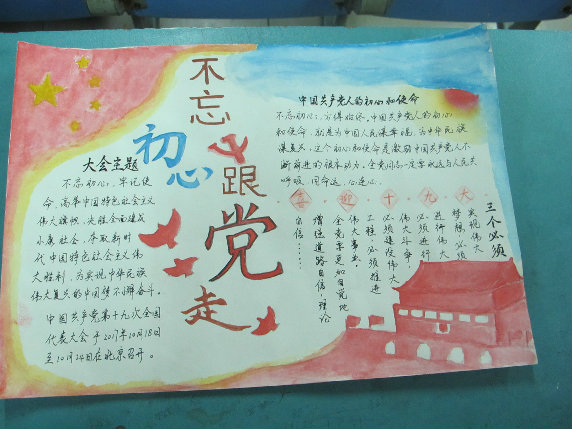 不忘
初心
跟
党
走
大会主题
不忘初心,牢记使
命,高举中国特色社会主义
伟大旗帜,决胜全面建成
小康社会,夺取新时
代中国特色社会主义伟
大胜利,为实现中华民族
伟大复兴的中国梦不懈奋斗。
中国共产党第十九次全国
代表大会于2017年10月18日
至10月24日在北京召开。
中国共产党人的初心和使命
不忘初心,方得始终。中国共产党人的初心
和使命,就是为中国人民谋幸福,为中华民族
谋复兴。这个初心和使命是激励中国共产党人不
断前进的根本动力。全党同志一定要永远与人民共
呼吸、同命运、心连心。
喜迎十九大
三个必须
实现伟大
梦想,必须
进行伟大
必须进行
伟大斗争,
必须建设伟大
工程,必须推进
伟大事业。
全党要更加自觉地
增强道路自信,理论
自信……